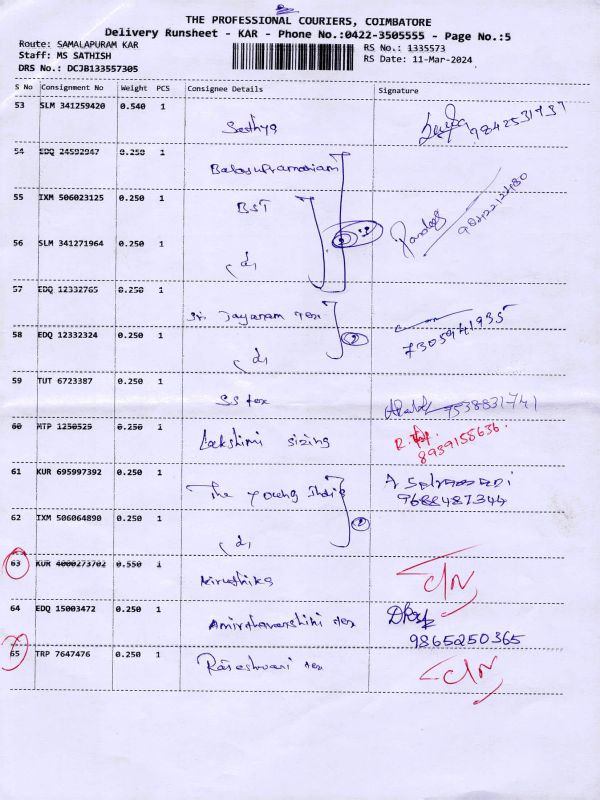 THE PROFESSIONAL COURIERS, COIMBATORE
Delivery Runsheet - KAR - Phone No.:0422-3505555 - Page No.:5
Route: SAMALAPURAM KAR
RS No.: 1335573
Staff: MS SATHISH
RS Date: 11-Mar-2024
DRS No.: DCJB133557305
S No Consignment No Weight PCS Consignee Details Signature
53 SLM 341259420 0.540 1
Sathya 9842531737
54 EDQ 24592947 0.250 1
Balasubramaniam
55 IXM 506023125 0.250 1
BST
56 SLM 341271964 0.250 1
d1
57 EDQ 12332765 0.250 1
Sri Jayaram tex
7305941935
58 EDQ 12332324 0.250 1
d1
59 TUT 6723387 0.250 1
SS tex 7538831741
60 MTP 1250529 0.250 1
Lakshimi sizing
8939155636.
61 KUR 695997392 0.250 1
The young India
9688487344
62 IXM 506064890 0.250 1
d1
63 KUR 4000273702 0.550 1
Niruthika
C/N
64 EDQ 15003472 0.250 1
Amirthavarshini tex
9865250365
65 TRP 7647476 0.250 1
Rajeshwari tex
C/N